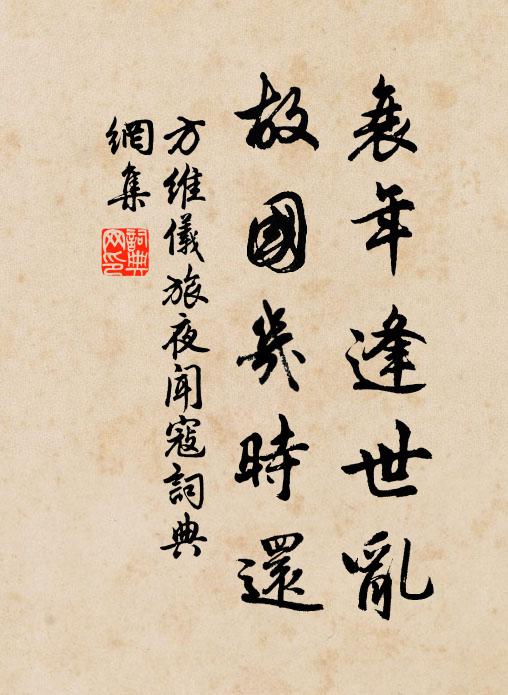 衰年逢世亂
故國幾時還
方維儀旅夜聞寇詞典
網集
詞典網印